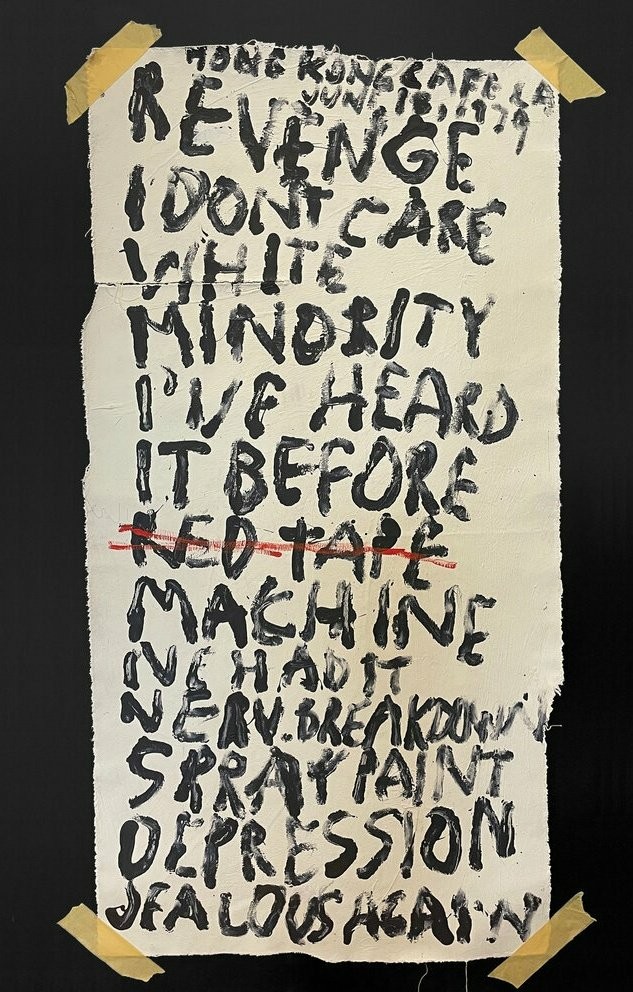 HONG KONG CAFE LA
JUNE 18, 1979
REVENGE
I DONT CARE
WHITE
MINORITY
I'VE HEARD
IT BEFORE
RED TAPE
MACHINE
IVE HAD IT
NERV. BREAKDOWN
SPRAY PAINT
DEPRESSION
JEALOUS AGAIN